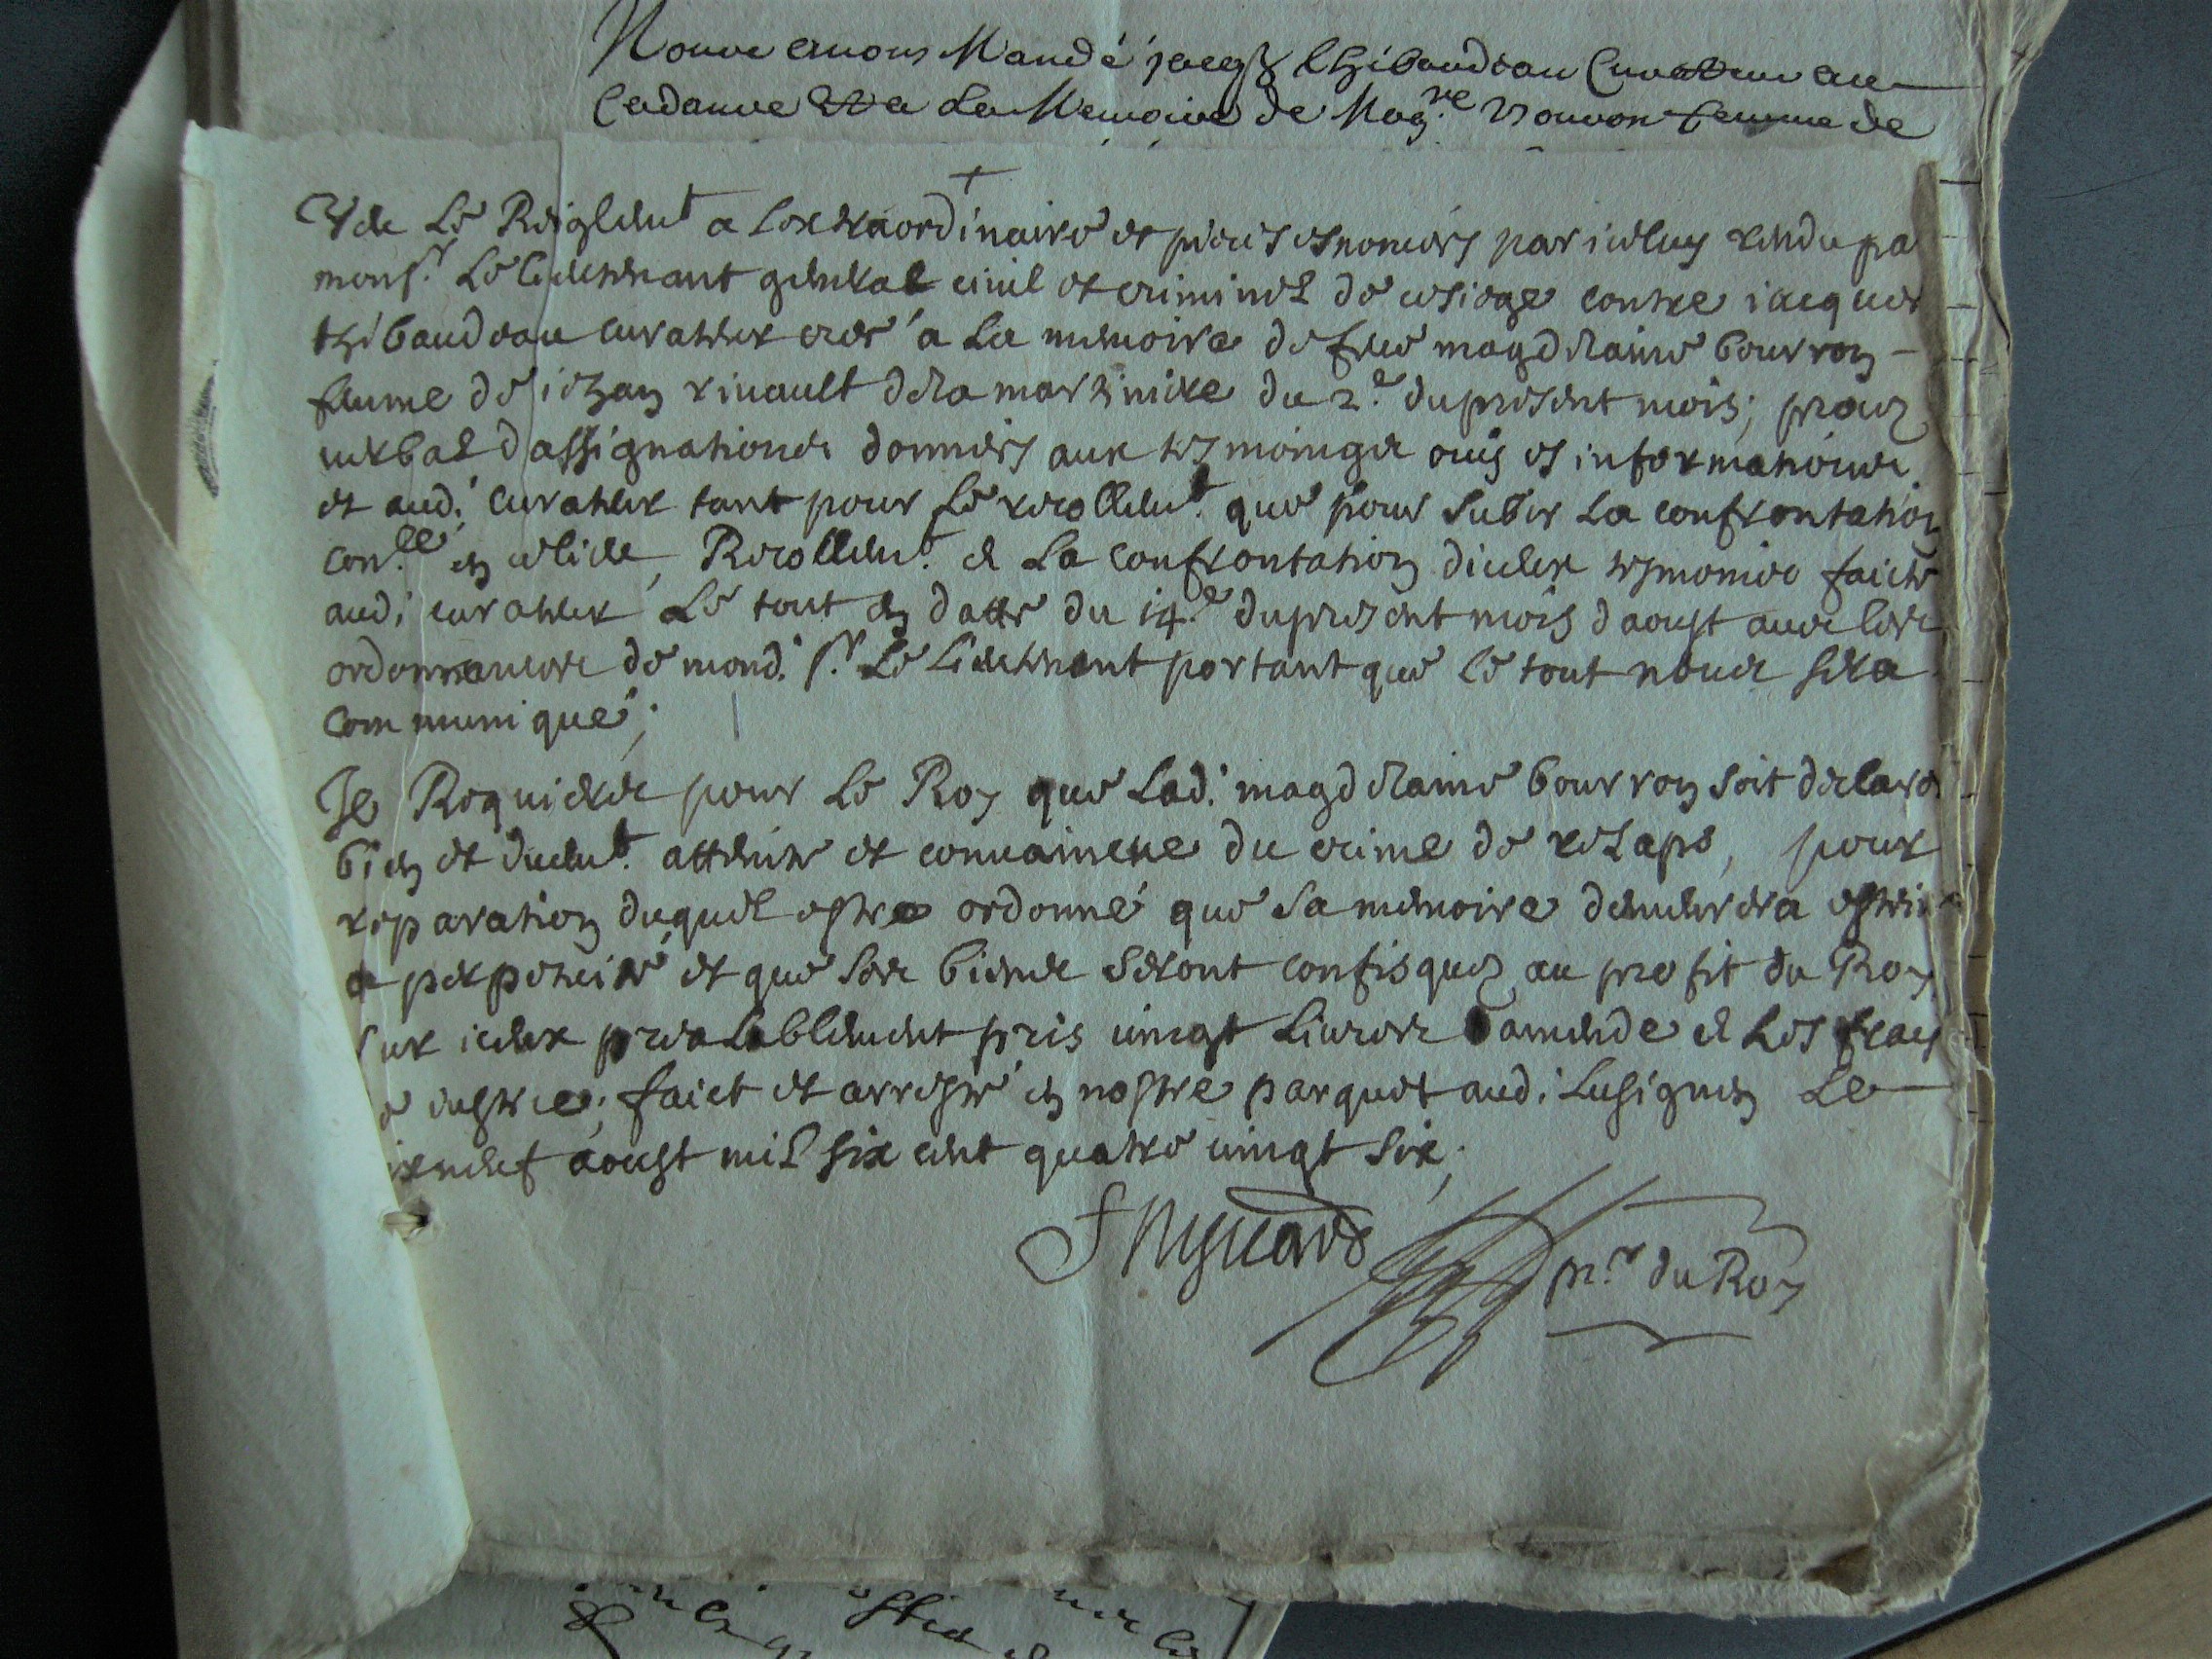 Nouve avons Mandé jacq§ Thibaudeau Curateur au
Cadavre et a La Memoire de Mag.ne Bouron femme de
Veu Le Reiglem.t a Lextraordinaire et pieces esnoncées par iceluy rendu pa
mons.r Le lieutenant general civil et criminel de ce siege contre iacques
thibaudeau curateur créé a La memoire de feue magdelaine bourron
femme de iehan rivault de la martiniere du 2.e du present mois; procez
verbal d'assignations données aux tesmoings ouis es informations
et aud. curateur tant pour Le recollem.t que pour subir La confrontation
con.lle en icelle, Recollem.t et La confrontation diceux tesmoins faicte
aud. curateur Le tout en datte du 14.e du present mois d'aoust avec les
ordonnances de mond. s.r Le Lieutenant portant que le tout nous sera
communiqué;
Je Requiere pour Le Roy que Lad. magdelaine bourron soit declarée
bien et deuem.t atteinte et convaincue du crime de relaps, pour
reparation duquel estre ordonné que sa memoire demeurera esteinte
a perpetuité et que ses biens seront confisquez au profit du Roy
sur iceux prealablement pris vingt Livres d'amende et Les frais
de iustice; faict et arresté en nostre parquet aud. Lusignen Le
dixneuf aoust mil six cent quatre vingt six;
pr.r du Roy